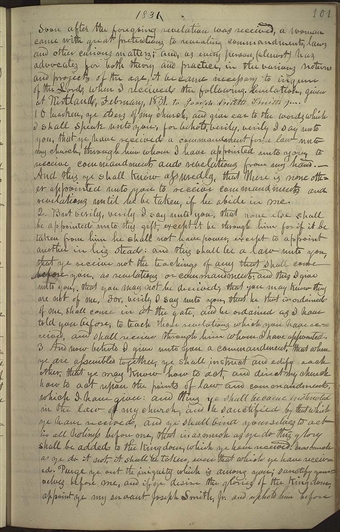 1831
101
Soon after the foregoing revelation was received, a woman
came with great pretentions to revealing commandments, laws
and other curious matters; and, as every person, (almost) has
advocates for both theory and practice, in the various notions
and projects of the age, it became necessary to inquire
of the Lord, when I received the following: Revelation, given
at Kirtland, February, 1831. to Joseph Smith
1 O hearken, ye elders of my church, and give ear to the words which
I shall speak unto you; for behold, verily, verily I say unto
you, that ye have received a commandment for a law unto
my church, through him whom I have appointed unto you, to
receive commandments and revelations from my hand.
And this ye shall know assuredly, that there is none oth-
er appointed unto you to receive commandments and
revelations until he be taken, if he abide in me.
2 But verily, verily, I say unto you, that none else shall
be appointed unto this gift, except it be through him for if it be
taken from him he shall not have power, except to appoint
another in his stead: and this shall be a law unto you,
that ye receive not the teachings of any that shall come
before you, as revelations or commandments; and this I give
unto you, that you may not be deceived, that you may know they
are not of me. For, verily I say unto you, that he that is ordained
of me, shall come in at the gate, and be ordained as I have
told you before, to teach those revelations which you have re-
ceived, and shall receive through him whom I have appointed.
3 And now behold I give unto you a commandment, that when
ye are assembled together, ye shall instruct and edify each
other, that ye may know how to act, and direct my church
how to act upon the points of law and commandments,
which I have given: and thus ye shall become instructed
in the law of my church, and be sanctified by that which
ye have received, and ye shall bind yourselves to act
in all holiness before me, that inasmuch as ye do this, glory
shall be added to the kingdom, which ye have received. Inasmuch
as ye do it not, it shall be taken, even that which ye have receiv-
ed. Purge ye out the iniquity which is among you; sanctify your-
selves before me, and if ye desire the glories of the kingdom,
appoint ye my servant Joseph Smith, jr. and uphold him before